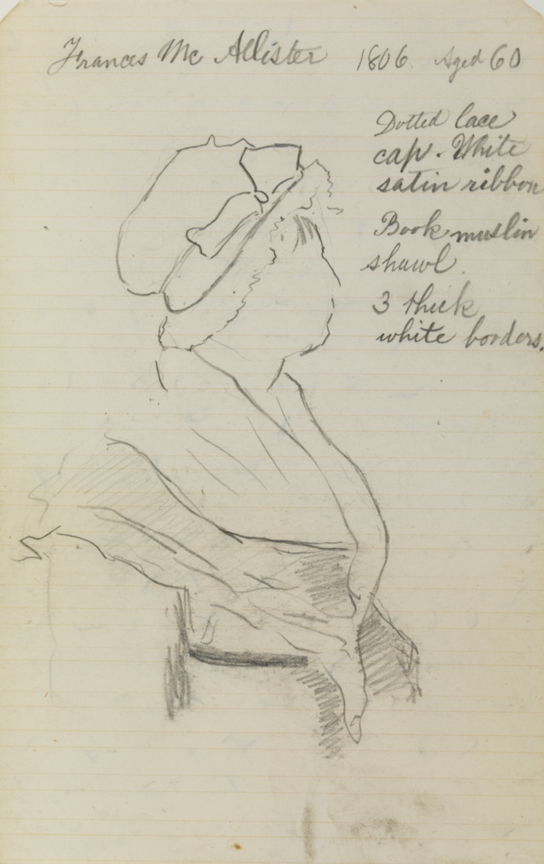 Frances Mc Allister 1806 Aged 60
Dotted lace
cap. White
satin ribbon
Book muslin
shawl.
3 thick
white borders.